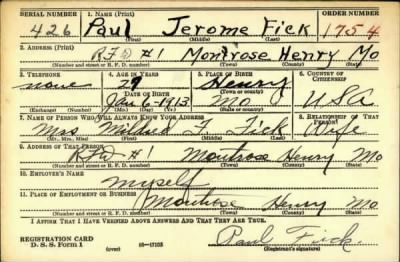 SERIAL NUMBER 1. NAME (Print) ORDER NUMBER
426 Paul Jerome Fick 1754
(First) (Middle) (Last)
2. ADDRESS (Print)
RFD #1 Montrose Henry Mo
(Number and street or R. F. D. number) (Town) (County) (State)
3. TELEPHONE 4. AGE IN YEARS 5. PLACE OF BIRTH 6. COUNTRY OF CITIZENSHIP
none Henry
DATE OF BIRTH (Town or county)
Jan 1913 Mo USA
(Exchange) (Number) (Mo.) (Day) (Yr.) (State or country)
7. NAME OF PERSON WHO WILL ALWAYS KNOW YOUR ADDRESS 8. RELATIONSHIP OF THAT PERSON
Mrs Fick Wife
(Mr., Mrs., Miss) (First) (Middle) (Last)
9. ADDRESS OF THAT PERSON
RFD #1 Montrose Henry Mo
(Number and street or R. F. D. number) (Town) (County) (State)
10. EMPLOYER'S NAME
Myself
11. PLACE OF EMPLOYMENT OR BUSINESS
Montrose Henry Mo
(Number and street or R. F. D. number) (Town) (County) (State)
I AFFIRM THAT I HAVE VERIFIED ABOVE ANSWERS AND THAT THEY ARE TRUE.
REGISTRATION CARD
D. S. S. FORM 1 (over) 16—17105 Paul Fick.
(Registrant's signature)